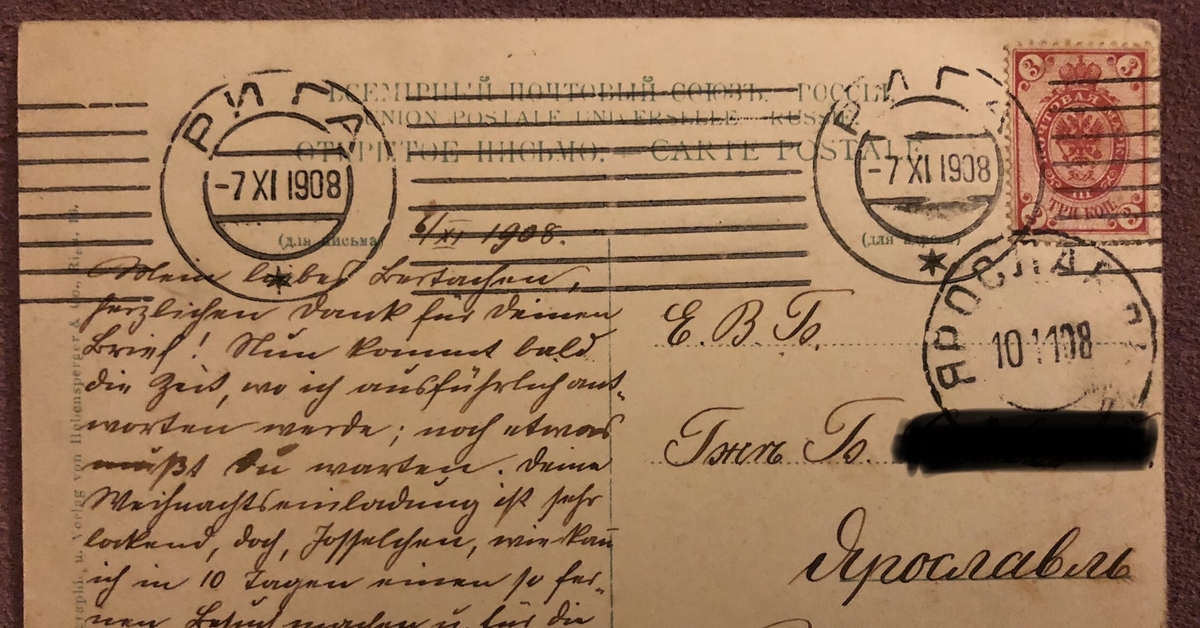 ВСЕМІРНЫЙ ПОЧТОВЫЙ СОЮЗЪ. РОССІЯ.
UNION POSTALE UNIVERSELLE RUSSIE
ОТКРЫТОЕ ПИСЬМО. — CARTE POSTALE
РИГА
-7 XI 1908
РИГА
-7 XI 1908
3 3
ПОЧТОВАЯ
ТРИ КОП.
3 3
(для письма)
6/XI 1908.
ЯРОСЛАВЛЬ
Mein liebes
herzlichen Dank für Deinen
Brief! Nun kommt bald
die Zeit, wo ich ausführlich ant-
worten werde; noch etwas
mußt Du warten. Deine
Weihnachtseinladung ist sehr
lockend, doch, Josselchen, wie kann
ich in 10 Tagen einen so fer-
nen Besuch machen u. für die
Е. В. Б.
Гжѣ Б.
Ярославль
u. Verlag von Hebensperger & Co., Riga.